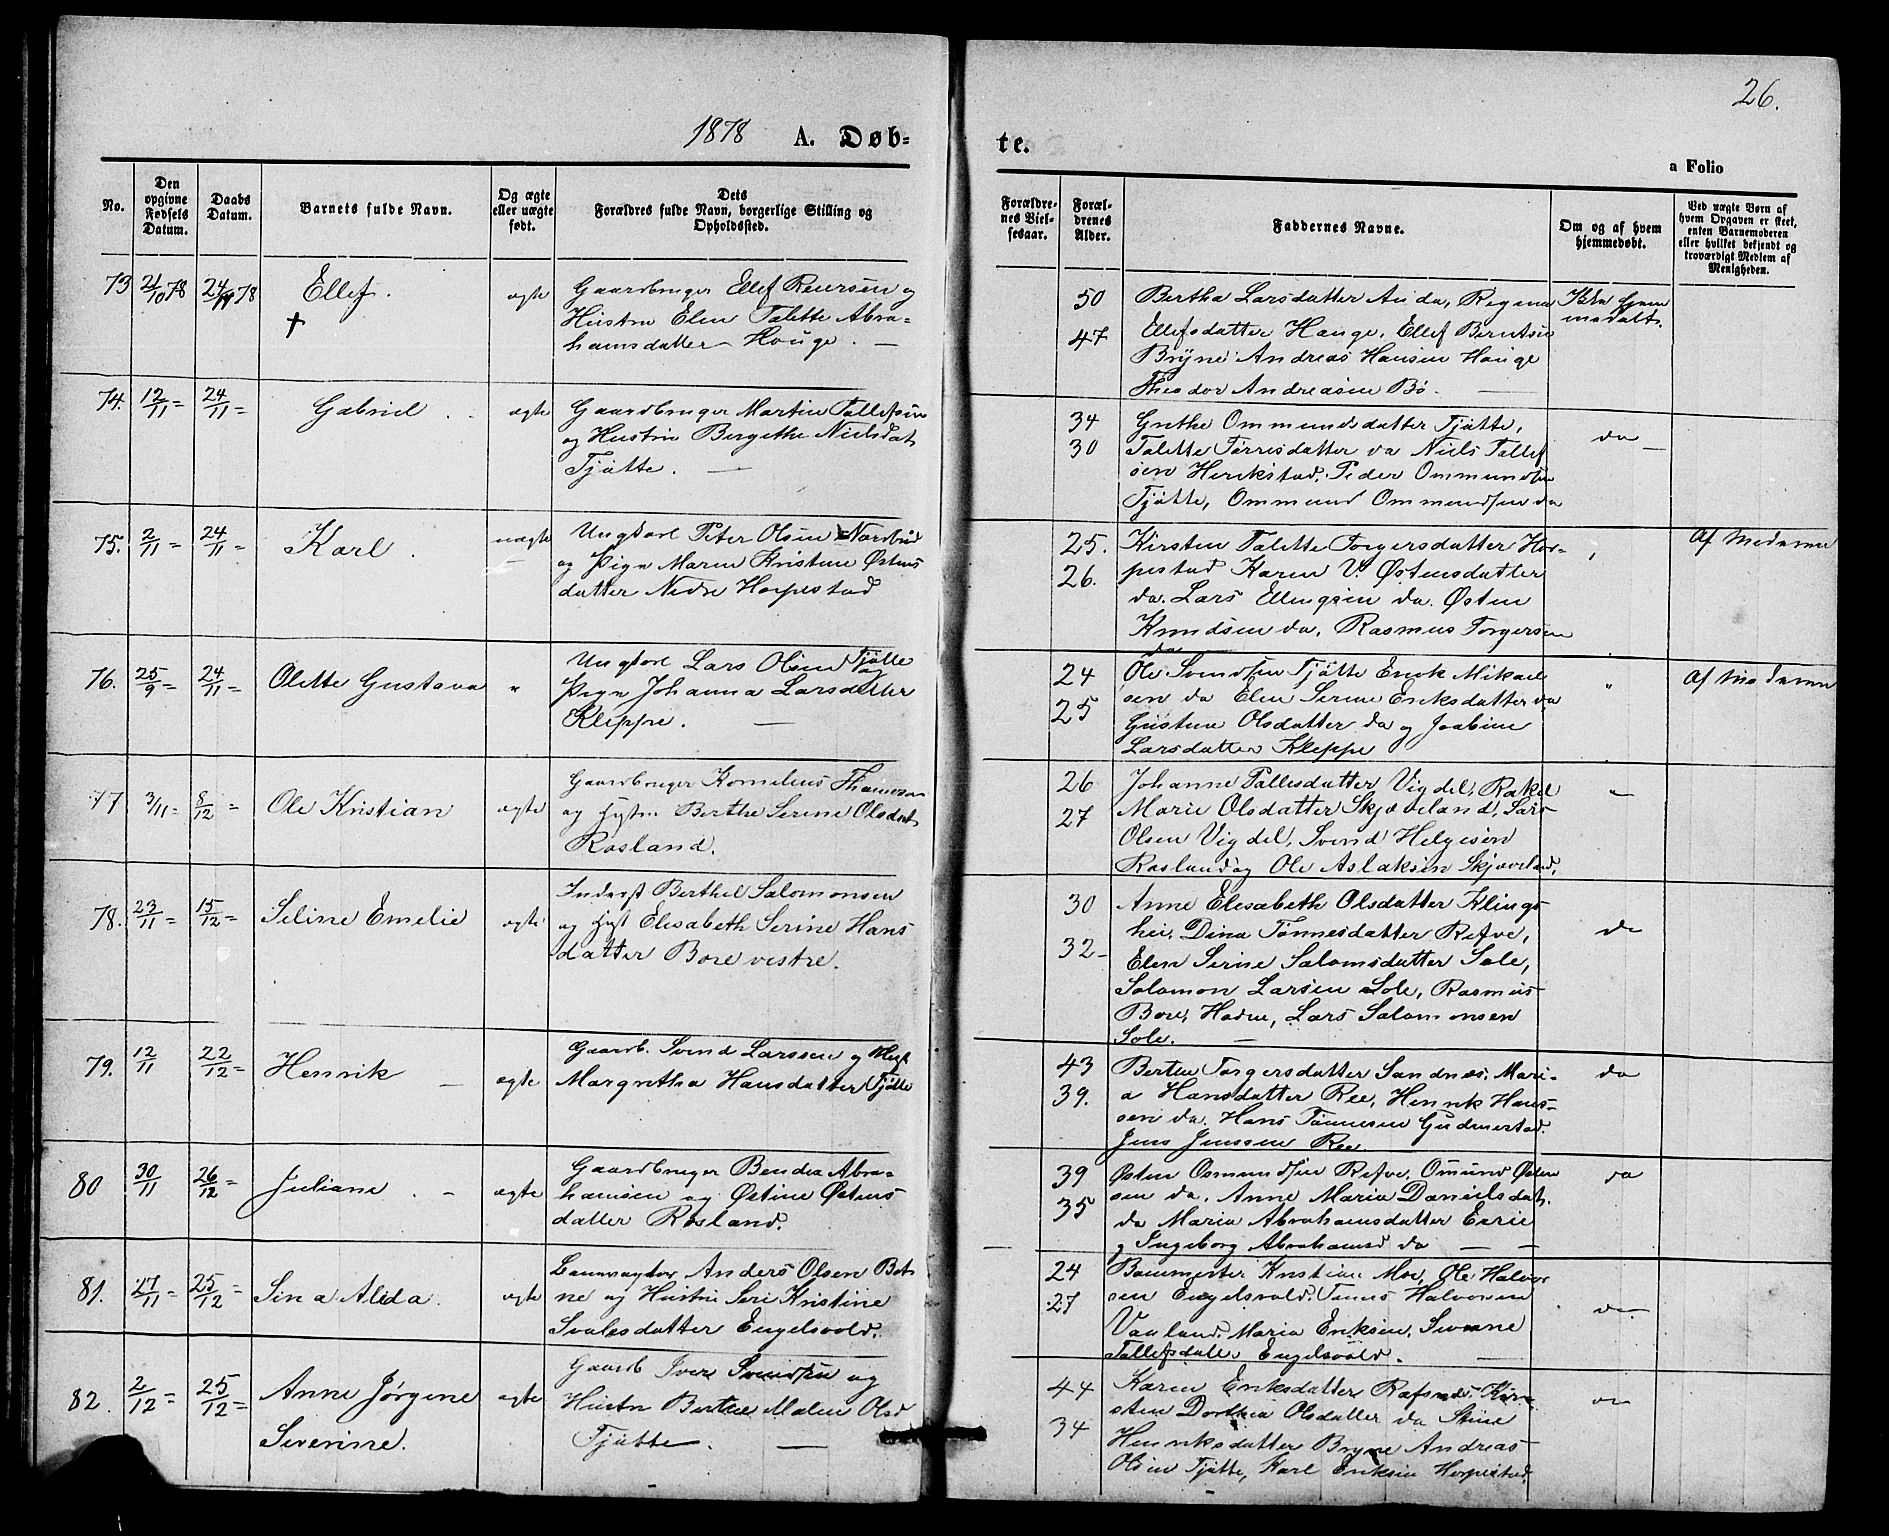 26.
1878 A. Døb-
te.
a Folio
No.
Den
opgivne
Fødsels
Datum.
Daabs
Datum.
Barnets fulde Navn.
Og ægte
eller uægte
født.
Dets
Forældres fulde Navn, borgerlige Stilling og
Opholdssted.
Forældre-
nes Viel-
sesaar.
Foræl-
drenes
Alder.
Faddernes Navne.
Om og af hvem
hjemmedøbt.
Ved uægte Børn af
hvem Opgaven er skeet,
enten Barnemoderen
eller hvilket bekjendt og
troværdigt Medlem af
Menigheden.
73 21/10 78 24/11 78 Ellef. ægte
†
Gaardbruger Ellef Reiersen og
Hustru Elen Talette Abra-
hamsdatter Houge. —
50
47
Bertha Larsdatter Auda, Regine
Ellefsdatter Hauge, Ellef Berntsen
Bryne Andreas Hansen Hauge
Theodor Andreasen Bö. —
Ikke hjem
medøbt.
74. 12/11 = 24/11 = Gabriel . . ægte
Gaardbruger Martin Tollefsen
og Hustru Bergithe Nielsdat
Tjøtte. —
34
30
Grethe Ommundsdatter Tjøtte,
Talette Tørresdatter da Niels Tollef
sen Herikstad, Peder Ommundsen
Tjøtte, Ommund Ommundsen da
da —
75. 2/11 = 24/11 = Karl . uægte
Ungkarl Peter Olsen Nordbø
og Pige Maren Kristine Østens
datter Nedre Horpestad
25.
26.
Kirsten Talette Torgersdatter Hor-
pestad Karen V. Østensdatter
da. Lars Ellingsen da. Østen
Knudsen da, Rasmus Torgersen
da
Af Moderen
76. 25/9 = 24/11 = Olette Gustava "
Ungkarl Lars Olsen Tjøtte
og
Pige Johanna Larsdatter
Kleppe. —
24
25
Ole Svendsen Tjøtte Enok Mikael
sen da Elen Serine Eriksdatter da
Gustine Olsdatter da og Joabine
Larsdatter Kleppe
"
Af Moderen
77 3/11 = 8/12 = Ole Kristian ægte
Gaardbruger Kornelius Thomsen
og Hustru Berthe Serine Olsdat
Rosland.
26
27
Johanne Pallesdatter Vigdel, Rakel
Marie Olsdatter Skjæveland, Lars
Olsen Vigdel, Svend Helgesen
Rosland og Ole Aslaksen Skjæveland,
"
78. 23/11 = 15/12 = Seline Emelie ægte
Inderst Berthel Salomonsen
og Hust Elisabeth Serine Hans
datter Bore vestre.
30
32-
Anne Elisabeth Olsdatter Klings
hei, Dina Tønnesdatter Refve,
Elen Serine Salomsdatter Sole,
Salomon Larsen Sole, Rasmus
Bore, Hodne, Lars Salomonsen
Sole. —
da
79. 12/11 22/12 = Henrik — ægte
Gaardb. Svend Larssen og Hust
Margretha Hansdatter Tjøtte
43
39.
Berten Torgersdatter Sandnes, Mari-
a Hansdatter Ree, Henrik Hans-
sen da. Hans Tønnesen Gudmestad.
Jens Jenssen Ree.
da
80 30/11 26/12 = Juliane . — ægte
Gaardbruger Bendix Abra-
hamsen og Østine Østens
datter Rosland.
39
35
Østen Osmundsen Refve, Omund Østen
sen da, Anne Maria Danielsdat.
da Maria Abrahamsdatter Eerie
og Ingeborg Abrahamsd da — —
da
81. 27/11 = 25/12 = Sina Alida. ægte
Banevogter Anders Olsen Bot
ne og Hustru Seri Kristine
Svalesdatter Engelsvold.
24
27
Banmester Kristian Moe, Ole Halvor
sen Engelsvold. Tønnes Halvorsen
Vauland, Maria Eriksen, Severine
Tollefsdatter Engelsvold. —
da
82. 2/12 = 25/12 = Anne Jørgine ægte
Severine.
Gaardb Iver Svendsen og
Hustru Berthe Malene Olsd
Tjøtte. —
44
34
Karen Eriksdatter Rofsnes, Kir-
sten Dorthea Olsdatter da Stine
Henriksdatter Bryne Andreas
Olsen Tjøtte, Karl Eriksen Horpestad.
da